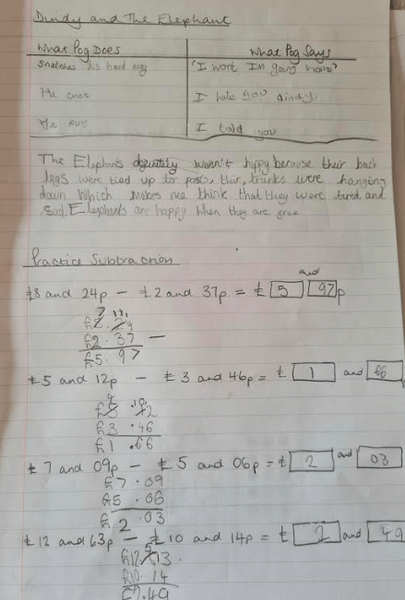 Dindy and The Elephant
What Pog Does What Pog Says
Snatches his hand away "I wont Im going home"
He cries I hate you dindy
He runs I told you
The Elephants definitely weren't happy because their back
legs were tied up to posts, their, trunks were hanging
down Which makes me think that they were tired and
sad. Elephants are happy when they are free
Practice Subtraction
and
£8 and 24p - £2 and 37p = £ 5 97 p
£8.24
£2.37 -
£5.97
£5 and 12p - £3 and 46p = £ 1 and 66
£5.12
£3.46
£1.66
£7 and 09p - £5 and 06p = £ 2 and 03
£7.09
£5.06
£2.03
£12 and 63p - £10 and 14p = £ 2 and 49
£10.14
£2.49